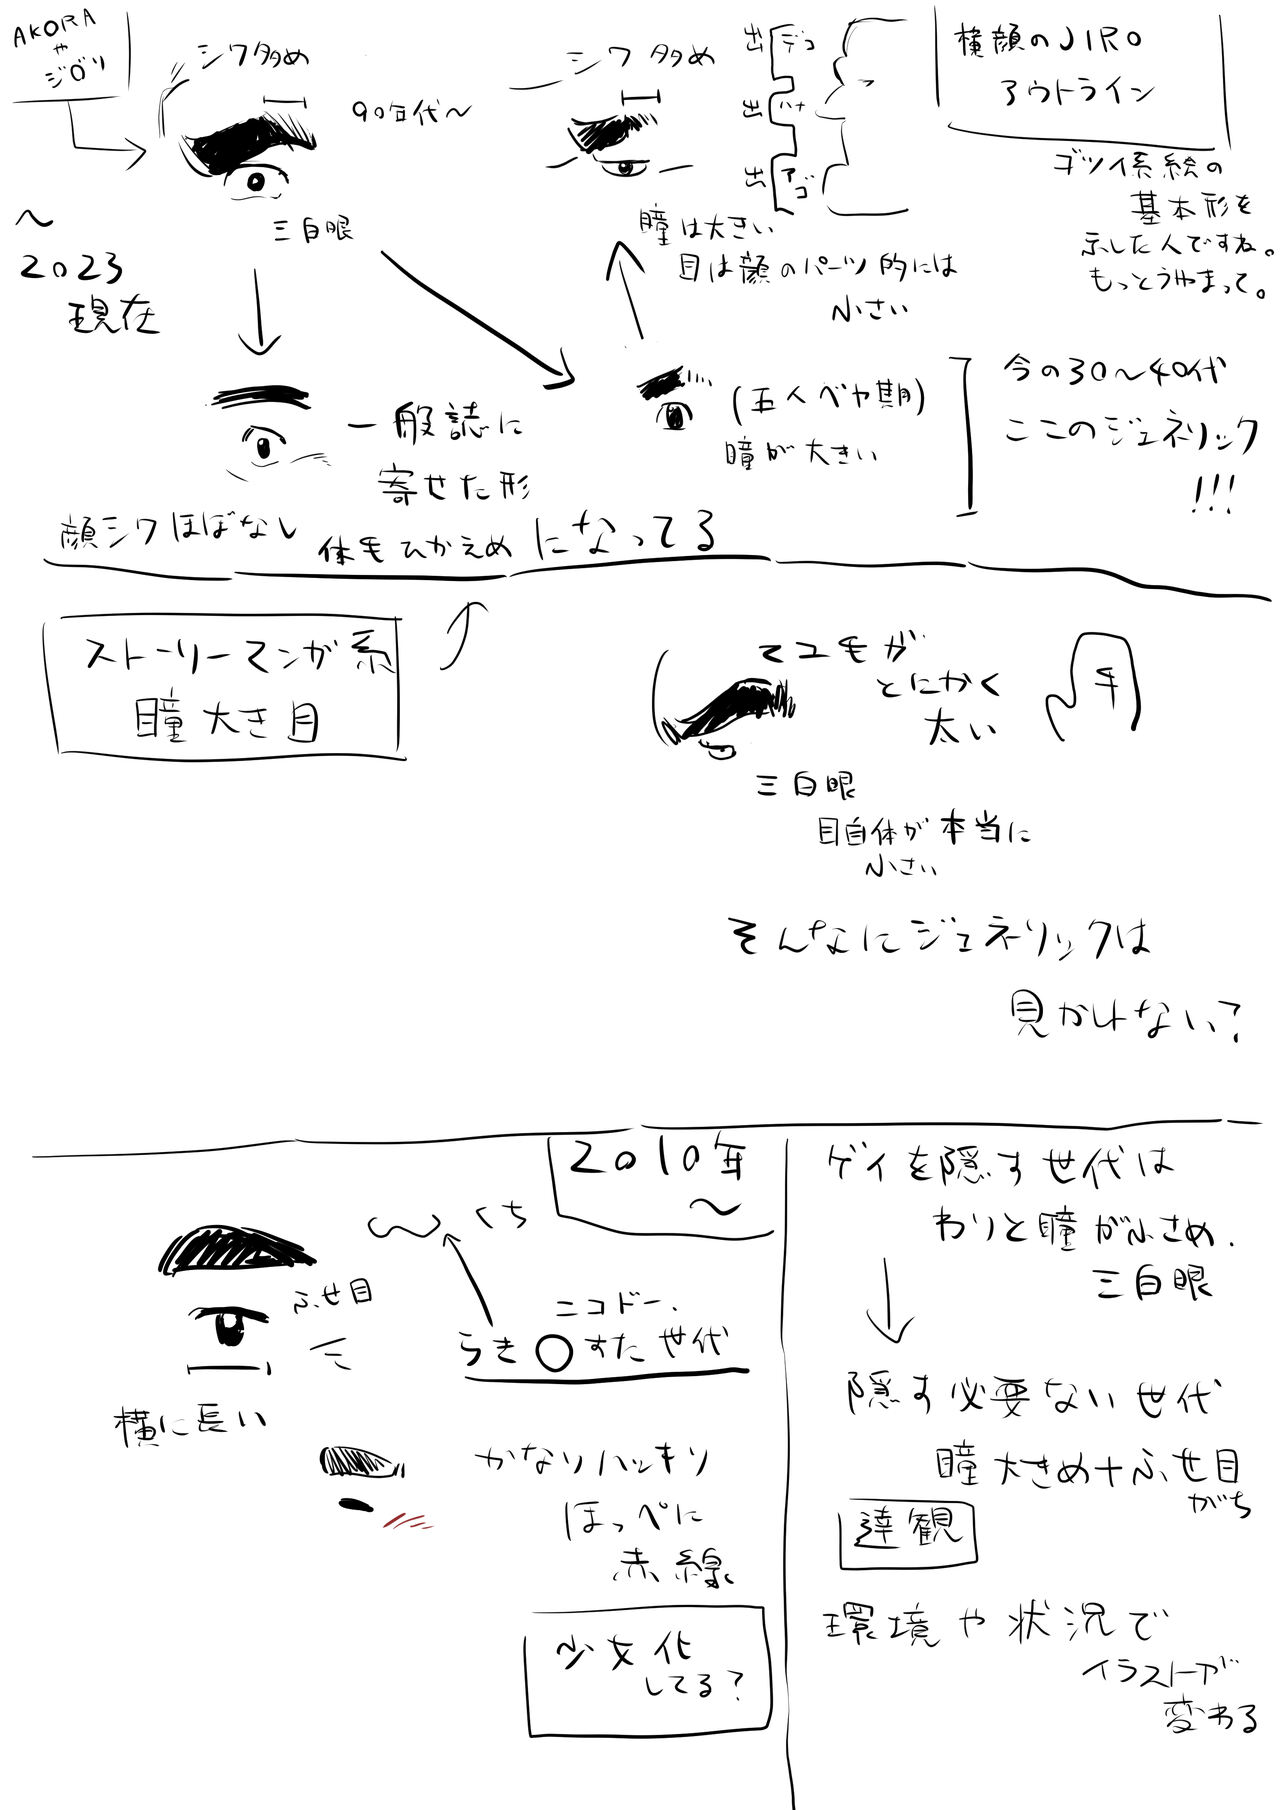 AKORA
や
ジロリ
シワ多め
90年代〜
三白眼
〜
2023
現在
シワ多め
出 デコ
出 ハナ
出 アゴ
横顔のJIRO
アウトライン
ゴツイ系絵の
基本形を
示した人ですね。
もっとうやまって。
瞳は大きい
目は顔のパーツ的には
小さい
一般誌に
寄せた形
顔シワほぼなし
体毛ひかえめになってる
(五人ベヤ期)
瞳が大きい
今の30〜40代
ここのジェネリック
!!!
ストーリーマンガ系
瞳大き目
マユ毛が
とにかく
太い
手
三白眼
目自体が本当に
小さい
そんなにジェネリックは
見かけない?
2010年
〜
くち
ふせ目
ニコドー.
らき〇すた世代
横に長い
かなりハッキリ
ほっぺに
赤線
少女化
してる?
ゲイを隠す世代は
わりと瞳が小さめ.
三白眼
隠す必要ない世代
瞳大きめ+ふせ目
がち
達観
環境や状況で
イラストが
変わる